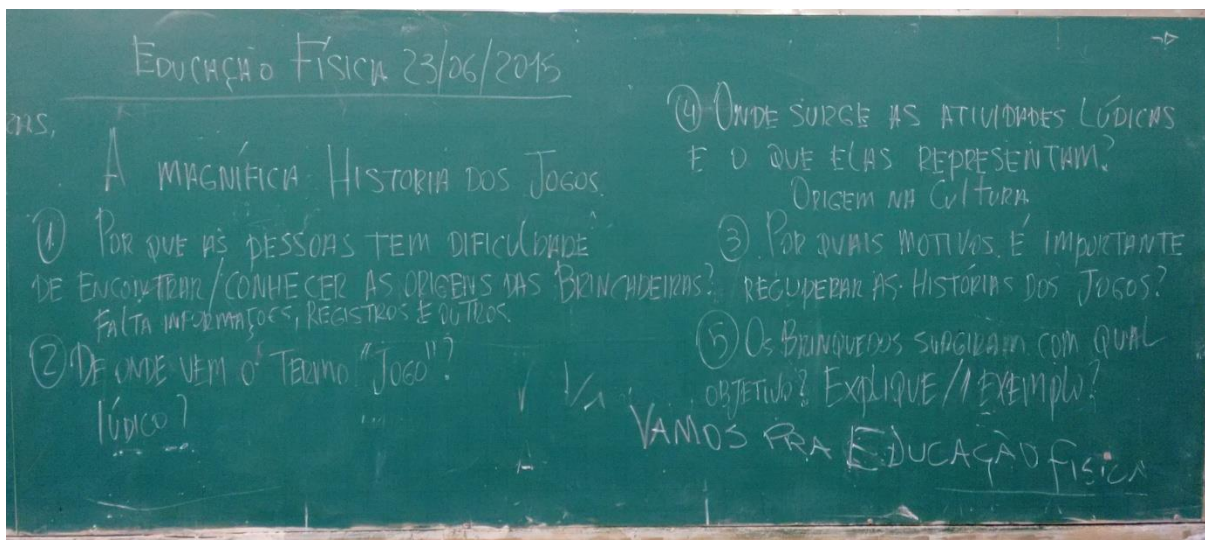 EDUCAÇÃO FÍSICA 23/06/2015
A MAGNÍFICA HISTORIA DOS JOGOS.
① POR QUE AS PESSOAS TEM DIFICULDADE
DE ENCONTRAR/CONHECER AS ORIGENS DAS BRINCADEIRAS?
FALTA INFORMAÇOES, REGISTROS E OUTROS.
② DE ONDE VEM O TERMO "JOGO"?
LÚDICO?
④ ONDE SURGE AS ATIVIDADES LÚDICAS
E O QUE ELAS REPRESENTAM?
ORIGEM NA CULTURA
③ POR QUAIS MOTIVOS É IMPORTANTE
RECUPERAR AS HISTÓRIAS DOS JOGOS?
⑤ OS BRINQUEDOS SURGIRAM COM QUAL
OBJETIVO? EXPLIQUE/1 EXEMPLO?
VAMOS PRA EDUCAÇÃO FISICA